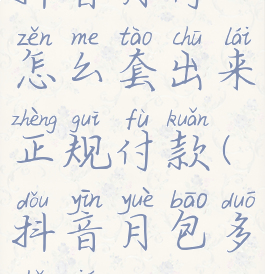 zěn me tào chū lái
怎么套出来
zhèng guī fù kuǎn
正规付款(
dǒu yīn yuè bāo duō
抖音月包多